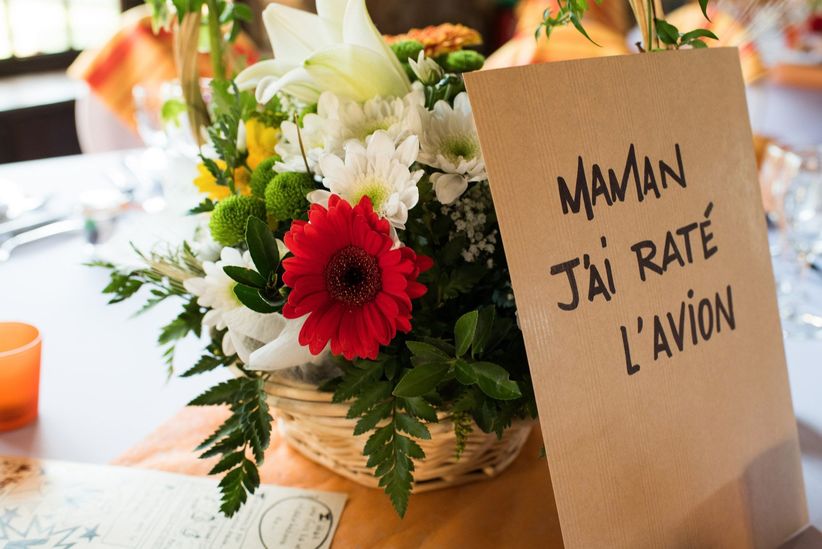 MAMAN
J'AI RATÉ
L'AVION